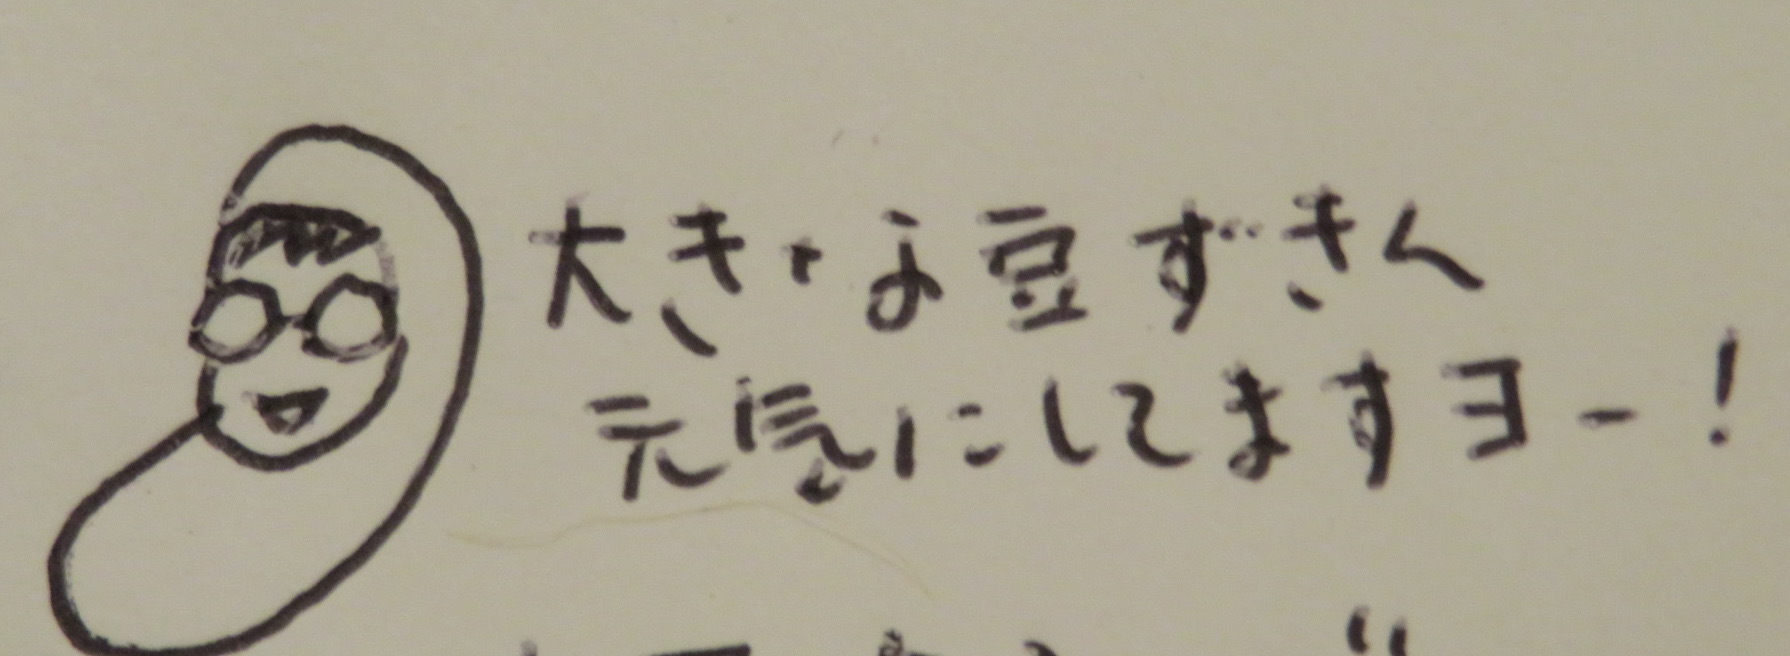 大きな豆ずきん
元気にしてますヨー!